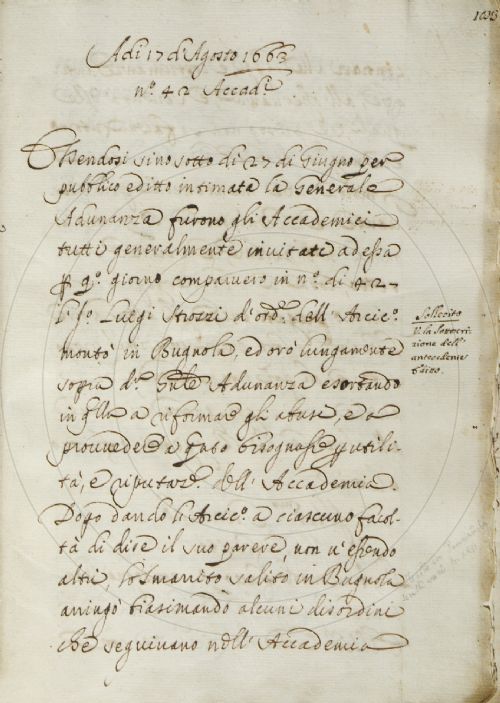 103
Adi 17 di Agosto 1663
nº. 42 Accad.ci
Essendosi sino sotto di 27 di Giugno per
pubblico editto intimata la Generale
Adunanza furono gli Accademici
tutti generalmente invitati ad essa
p q.º giorno comparvero in nº. di 42 –
L'Ill.º Luigi Strozzi d'ord.e dell'Arcic.º
montò in Bugnola, ed orò lungamente
sopra d.ª Gnle Adunanza esortando
in qlla a riformare gli abusi, e a
provvedere a qto bisognasse p utili-
tà, e riputaz.e dell'Accademia.
Dopo dando l'Arcic.º a ciascuno facol-
tà di dire il suo parere, non v'essendo
altri, lo Smarrito salito in Bugnola
aringò biasimando alcuni disordini
che seguivano nell'Accademia
Sollecito
V. la Soscri-
zione dell'
antecedente